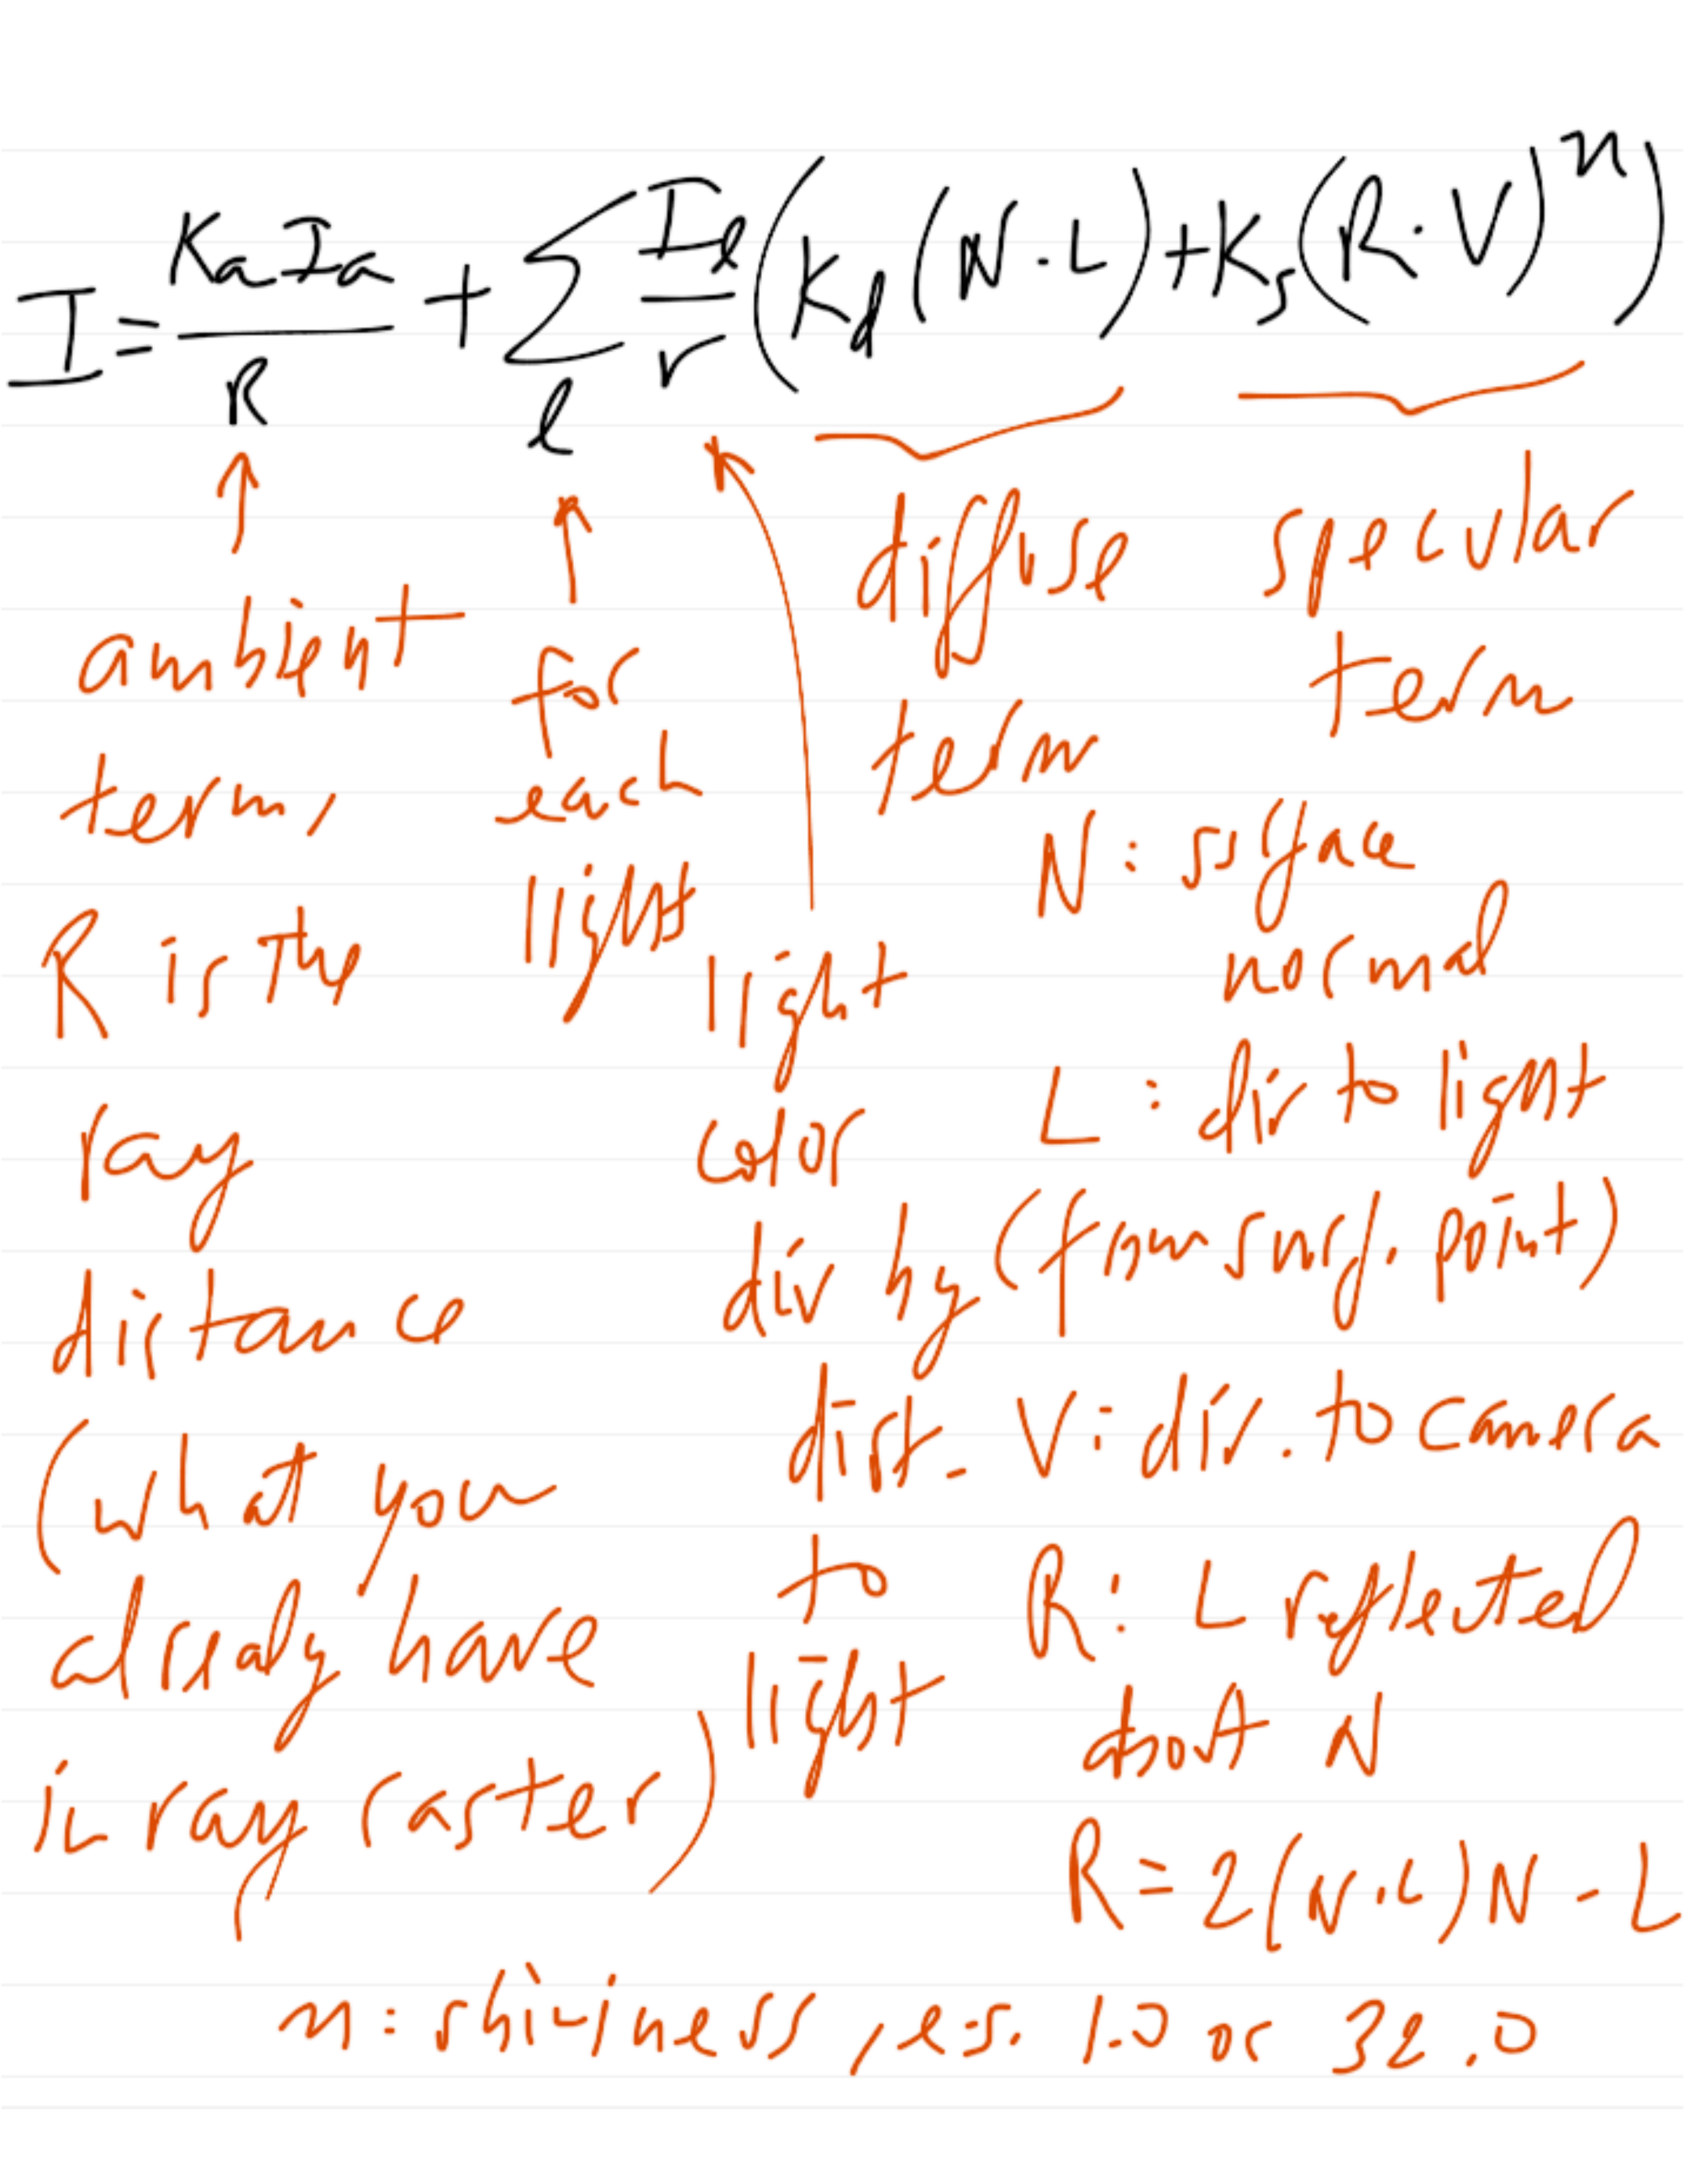 I = KaIa/R + Σl Il/r (Kd(N·L)+Ks(R·V)^n)
ambient
term,
R is the
ray
distance
(what you
already have
in ray caster)
for
each
light
light
color
div by
dist.
to
light
diffuse
term
specular
term
N: surface
normal
L: dir to light
(from surf. point)
V: dir. to camera
R: L reflected
about N
R = 2(N·L)N - L
n: shininess, e.g. 1.0 or 32.0